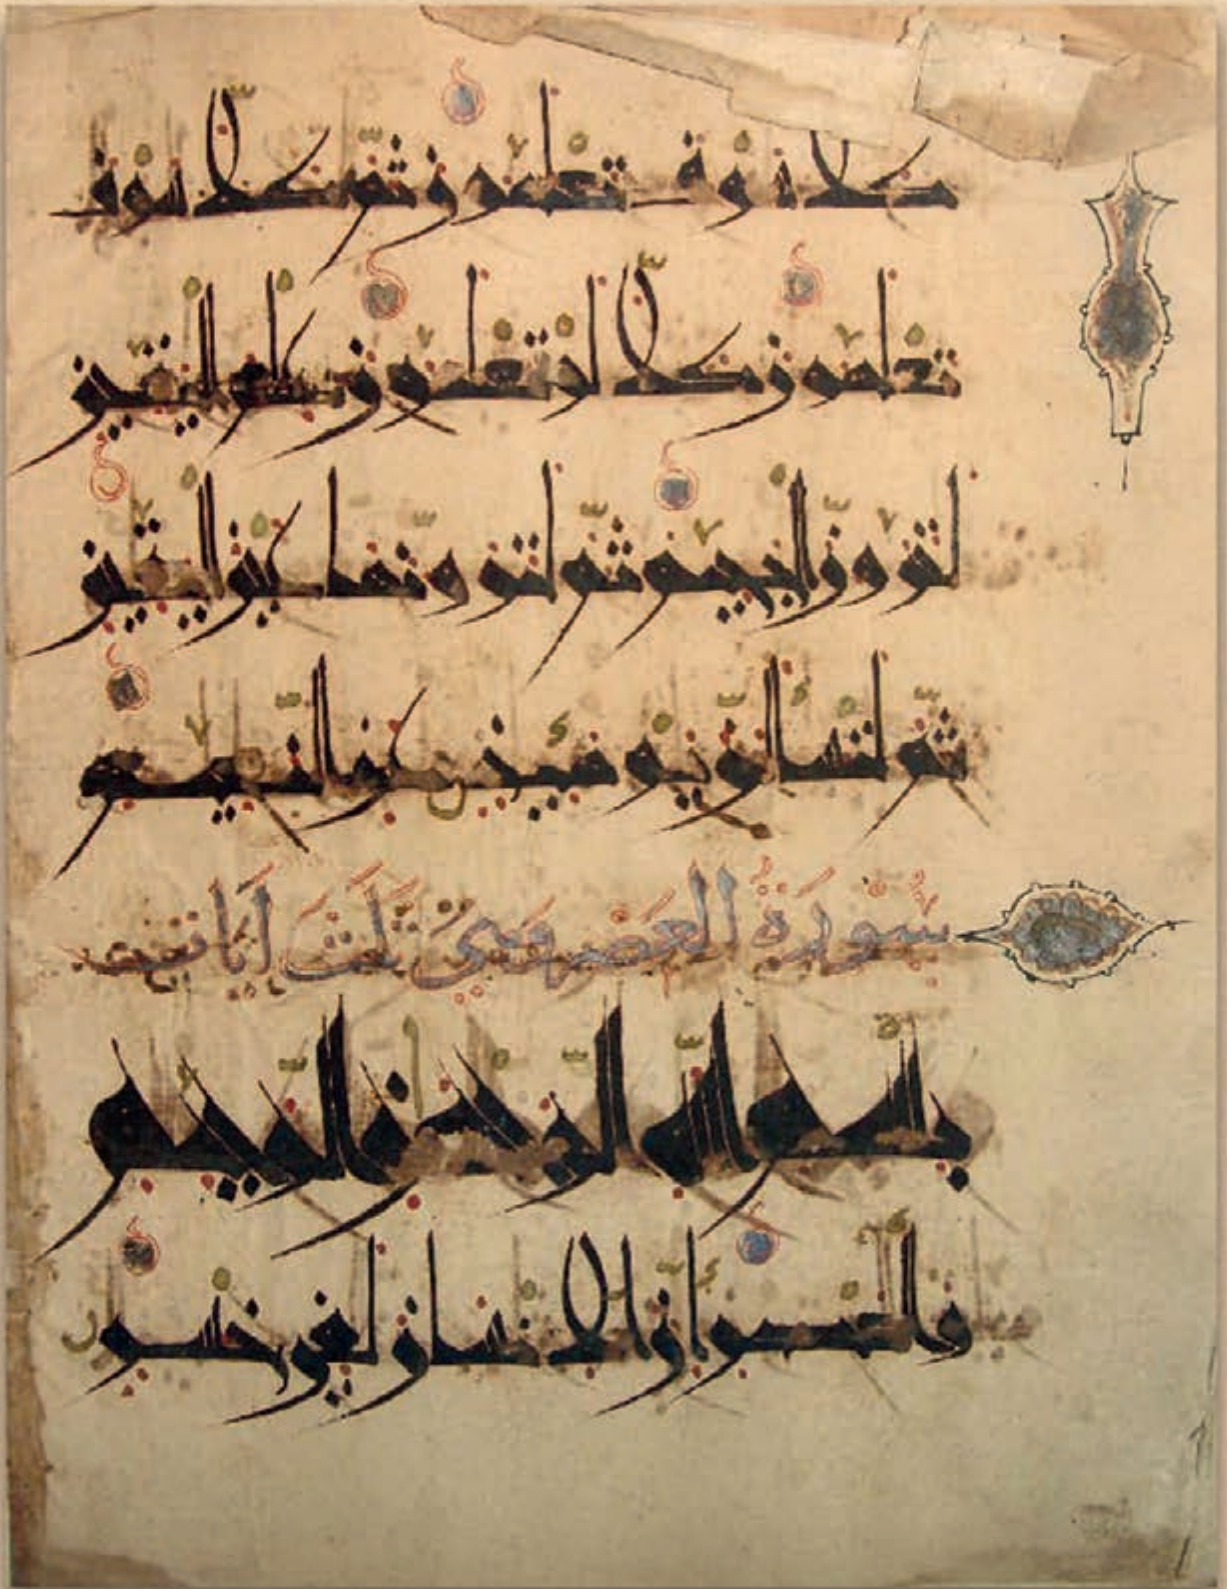 كَلَّا سَوْفَ تَعْلَمُونَ ثُمَّ كَلَّا سَوْفَ
تَعْلَمُونَ كَلَّا لَوْ تَعْلَمُونَ عِلْمَ الْيَقِينِ
لَتَرَوُنَّ الْجَحِيمَ ثُمَّ لَتَرَوُنَّهَا عَيْنَ الْيَقِينِ
ثُمَّ لَتُسْأَلُنَّ يَوْمَئِذٍ عَنِ النَّعِيمِ
سُورَةُ الْعَصْرِ وَهِيَ ثَلَثُ آيَاتٍ
بِسْمِ اللَّهِ الرَّحْمَٰنِ الرَّحِيمِ
وَالْعَصْرِ إِنَّ الْإِنْسَانَ لَفِي خُسْرٍ